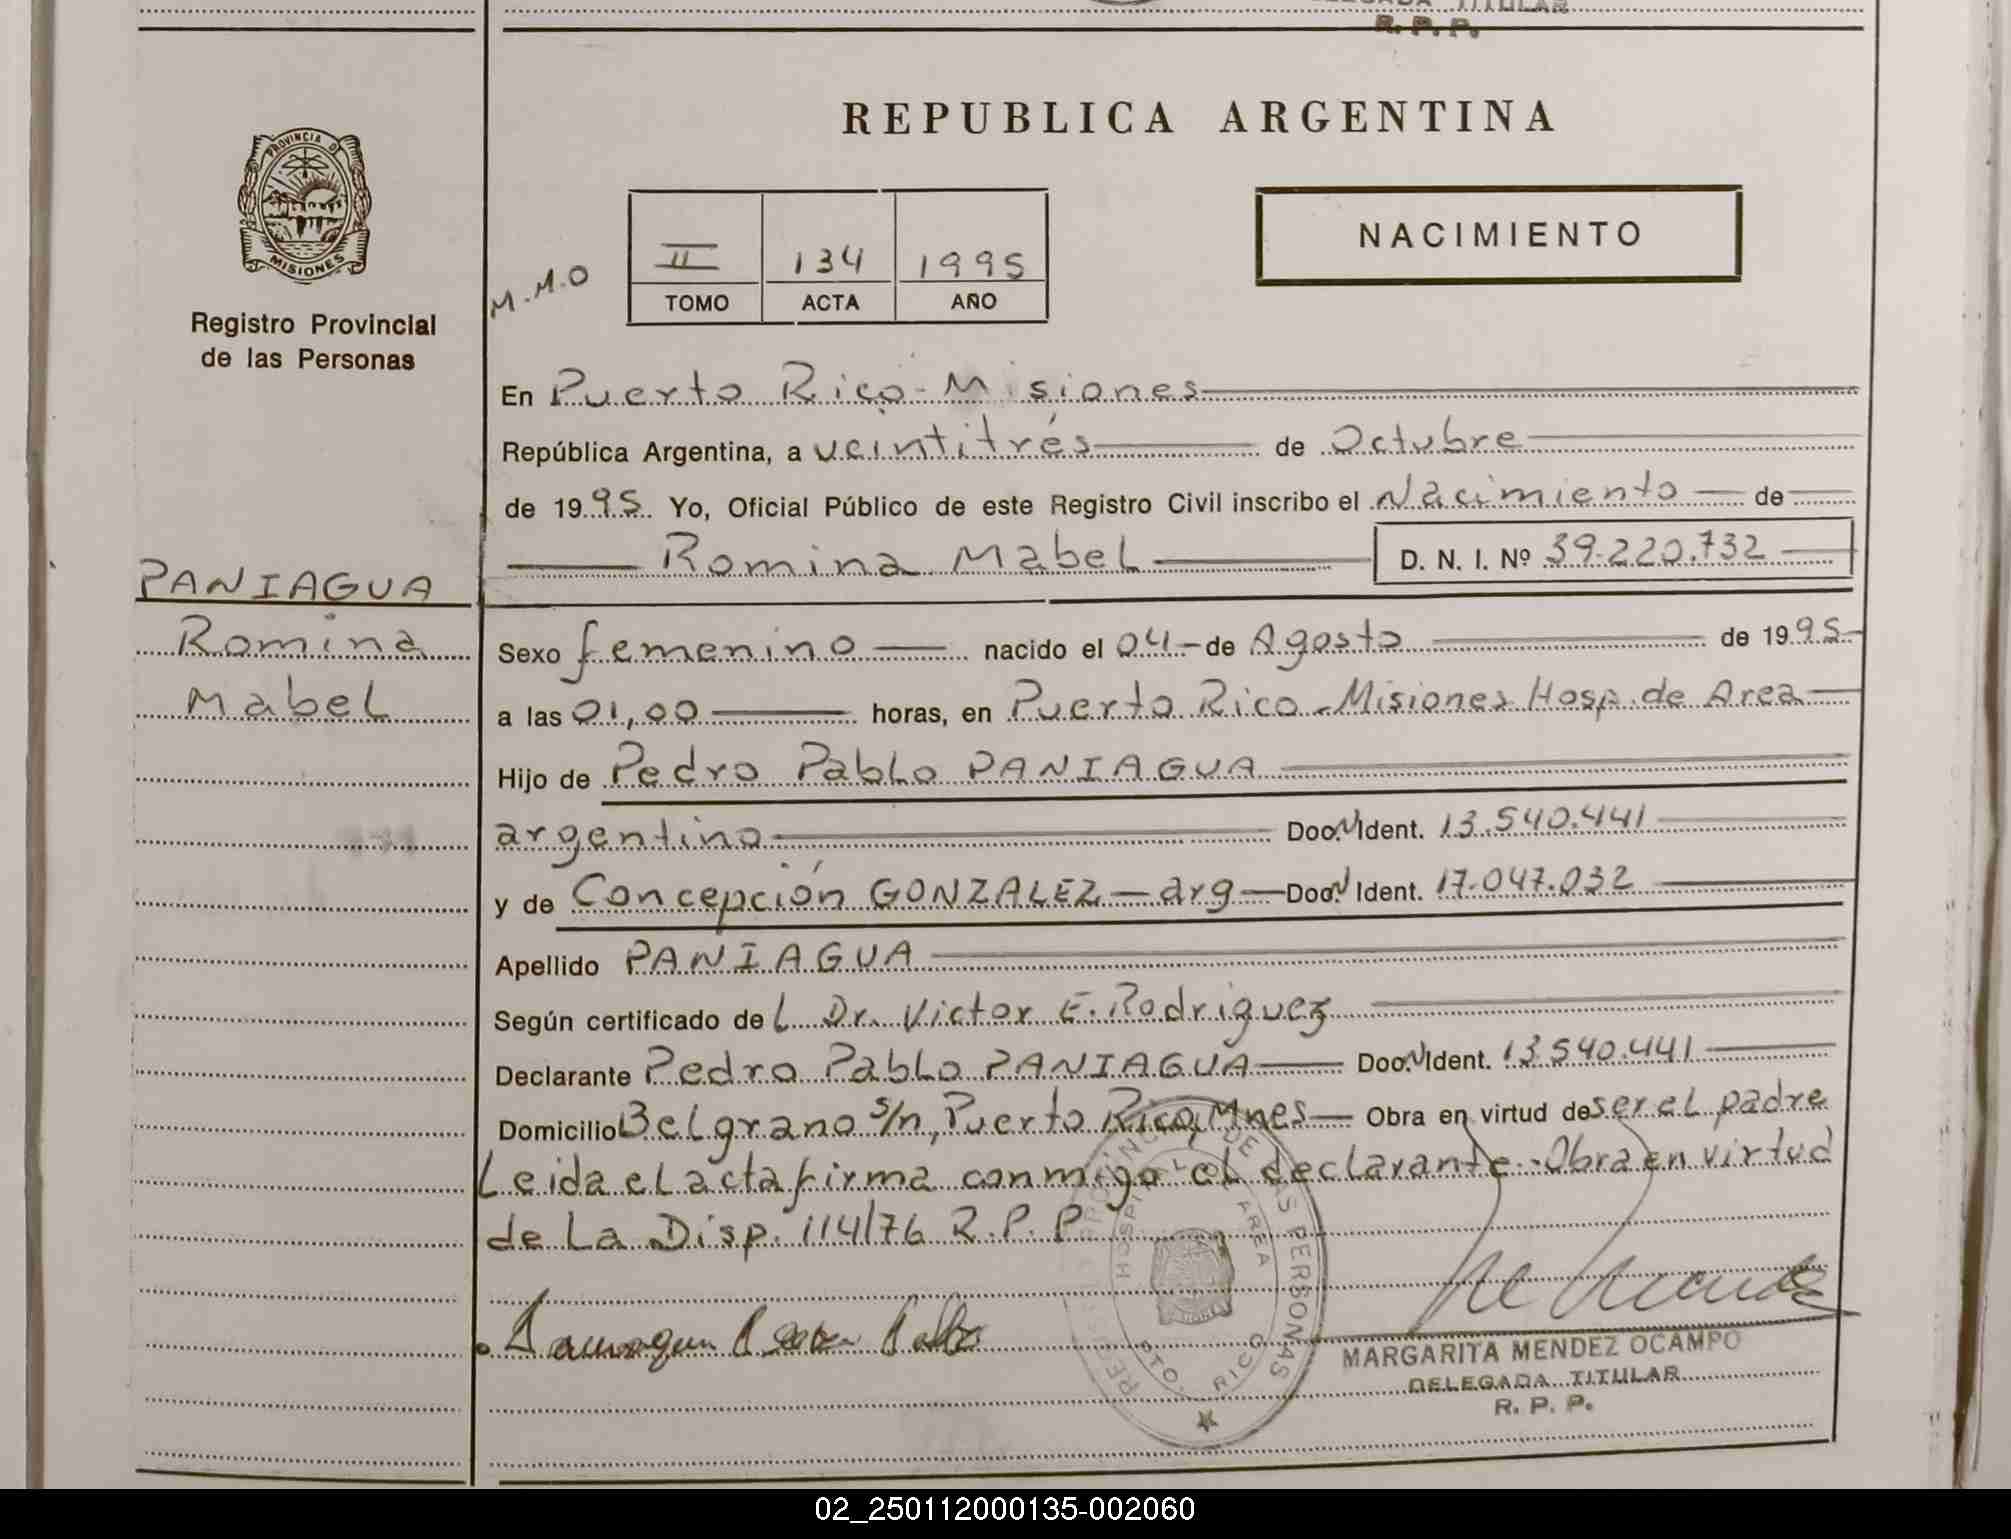 R. P. P.
REPUBLICA ARGENTINA
PROVINCIA D
MISIONES
Registro Provincial
de las Personas
M.M.O
II 134 1995
TOMO ACTA AÑO
NACIMIENTO
En Puerto Rico - Misiones
República Argentina, a veintitrés de Octubre
de 1995. Yo, Oficial Público de este Registro Civil inscribo el Nacimiento de
Romina Mabel D. N. I. Nº 39.220.732
PANIAGUA
Romina
Mabel
Sexo femenino nacido el 04 - de Agosto de 1995
a las 01,00 horas, en Puerto Rico - Misiones Hosp. de Area
Hijo de Pedro Pablo PANIAGUA
argentino Doc. N Ident. 13.540.441
y de Concepción GONZALEZ - arg - Doc. N Ident. 17.047.032
Apellido PANIAGUA
Según certificado del Dr. Victor E. Rodriguez
Declarante Pedro Pablo PANIAGUA Doc. N Ident. 13.540.441
Domicilio Belgrano s/n, Puerto Rico, Mnes Obra en virtud de ser el padre
Leida el acta firma conmigo el declarante. - Obra en virtud
de La Disp. 114/76 R.P.P
HOSPI AREA
DE LAS PERSONAS
PTO. RICO
MARGARITA MENDEZ OCAMPO
DELEGADA TITULAR
R. P. P.
02_250112000135-002060